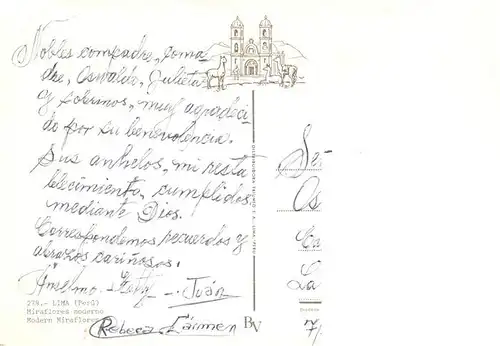 Nobles compadre, coma-
dre, Oswaldo, Julieta
y sobrinos, muy agradeci-
do por su benevolencia.
Sus anhelos, mi resta
blecimiento, cumplidos
mediante Dios.
Correspondemos recuerdos y
abrazos cariñosos.
Anselmo - - Juán
Rebeca Cármen
278.- LIMA (Perú)
Miraflores moderno
Modern Miraflores
BV
Os
La
7/